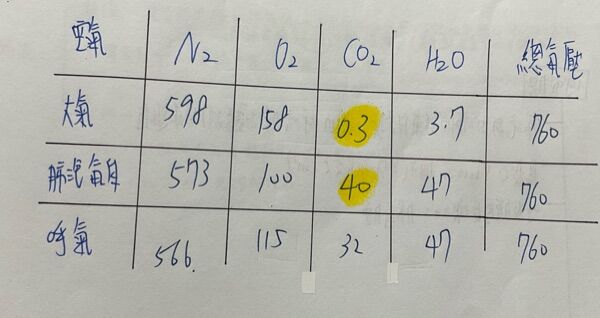 空氣 N₂ O₂ CO₂ H₂O 總氣壓
大氣 598 158 0.3 3.7 760
肺泡氣 573 100 40 47 760
呼氣 566 115 32 47 760